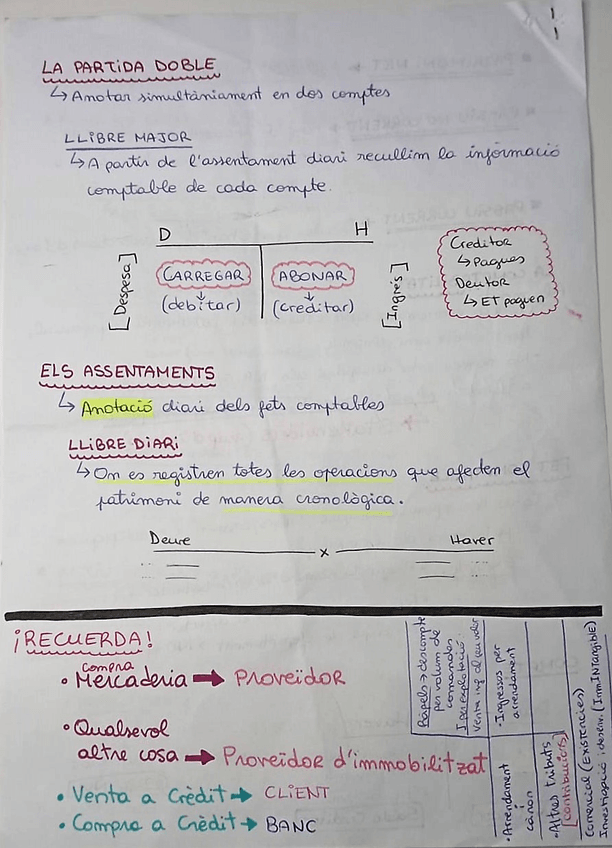 LA PARTIDA DOBLE
↳ Anotar simultàniament en dos comptes
LLIBRE MAJOR
↳ A partir de l'assentament diari recullim la informació
comptable de cada compte.
D H
[Despesa]
CARREGAR
(debitar)
ABONAR
(creditar)
[Ingrés]
Creditor
↳ Pagues
Deutor
↳ ET paguen
ELS ASSENTAMENTS
↳ Anotació diari dels fets comptables
LLIBRE DIARI
↳ On es registren totes les operacions que afecten el
patrimoni de manera cronològica.
Deure x Haver
¡RECUERDA!
compra
• Mercaderia ➡ PROVEÏDOR
• Qualsevol
altre cosa ➡ Proveïdor d'immobilitzat
• Venta a Crèdit → CLIENT
• Compra a Crèdit → BANC
Ràpels → descompte
per volum de
comandes
venta
• Ingressos per
arrendament
• Arrendament
i cànon
• Altres tributs
[contribucions]
Comercial (Existències)
Investigació i desenv. (Imm. INTangible)